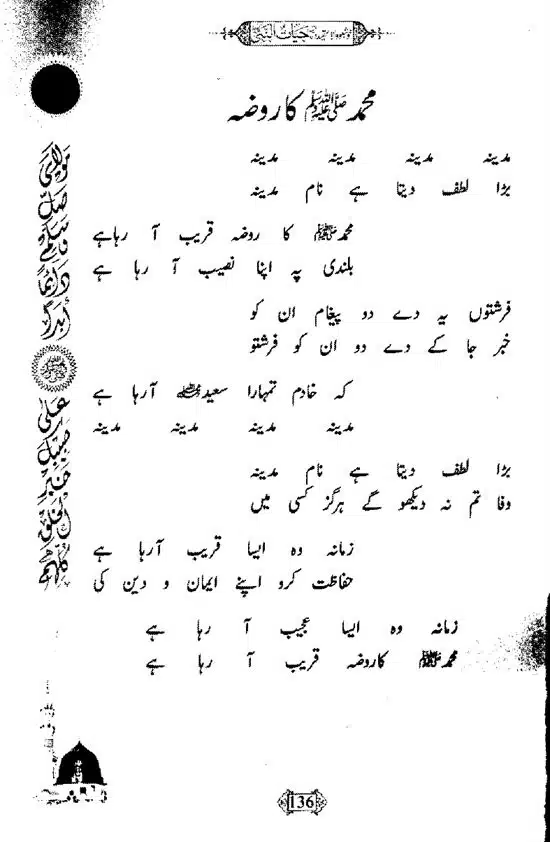 حیات النبی
محمد ﷺ کا روضہ
مدینہ مدینہ مدینہ مدینہ
بڑا لطف دیتا ہے نام مدینہ
محمدﷺ کا روضہ قریب آ رہاہے
بلندی پہ اپنا نصیب آ رہا ہے
فرشتوں یہ دے دو پیغام ان کو
خبر جا کے دے دو ان کو فرشتو
کہ خادم تمہارا سعید آرہا ہے
مدینہ مدینہ مدینہ مدینہ
بڑا لطف دیتا ہے نام مدینہ
وفا تم نہ دیکھو گے ہرگز کسی میں
زمانہ وہ ایسا قریب آرہا ہے
حفاظت کرو اپنے ایمان و دین کی
زمانہ وہ ایسا عجیب آ رہا ہے
محمدﷺ کاروضہ قریب آ رہا ہے
مولای صل وسلم دائما أبدا
على حبيبك خير الخلق كلهم
136